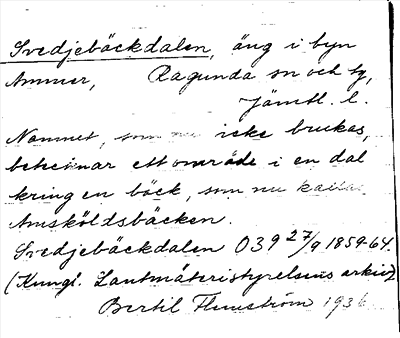 Svedjebäckdalen, äng i byn
Ammer, Ragunda sn och tg,
Jämtl. l.
Namnet, som nu icke brukas,
betecknar ett område i en dal
kring en bäck, som nu kallas
Amsköldsbäcken.
Svedjebäckdalen 039 27/9 1859-64.
(Kungl. Lantmäteristyrelsens arkiv)
Bertil Flemström 1936